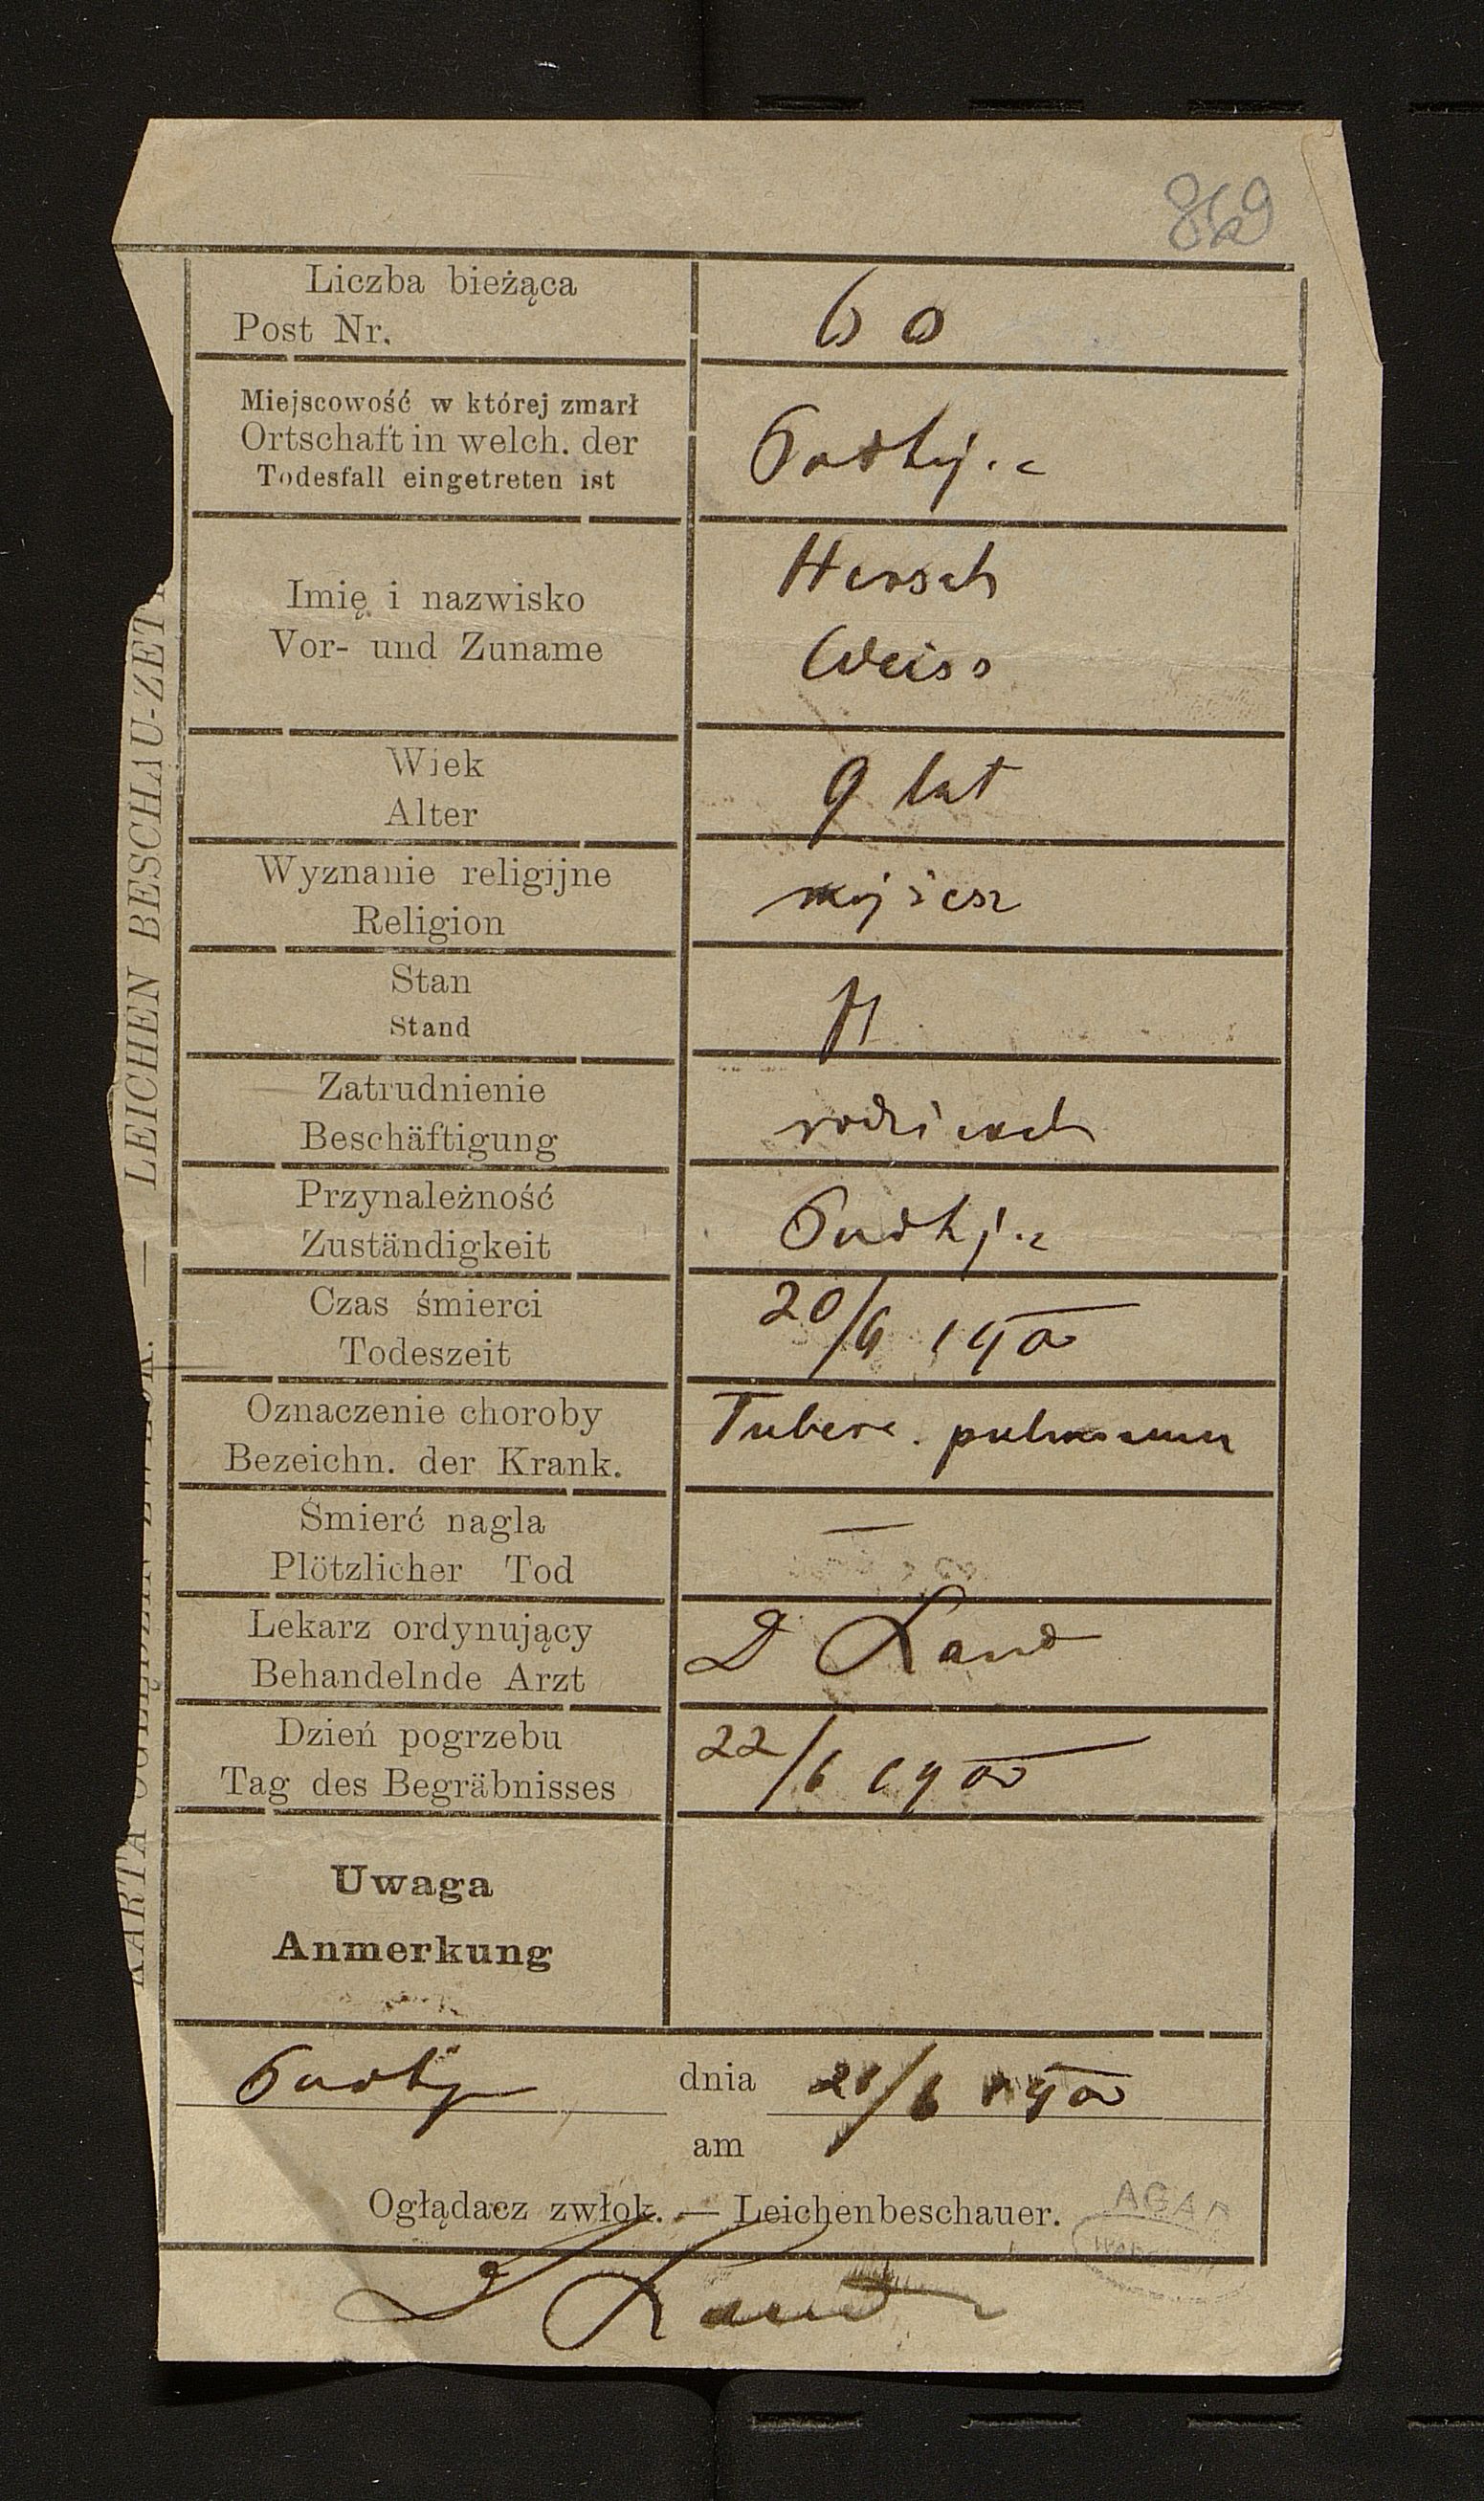 869
Liczba bieżąca
Post Nr.
60
Miejscowość w której zmarł
Ortschaft in welch. der
Todesfall eingetreten ist
Imię i nazwisko
Vor- und Zuname
Hersch
Weiss
Wiek
Alter
9 lat
Wyznanie religijne
Religion
mojżesz
Stan
Stand
Zatrudnienie
Beschäftigung
Przynależność
Zuständigkeit
Czas śmierci
Todeszeit
20/6 1900
Oznaczenie choroby
Bezeichn. der Krank.
Tuberc. pulmonum
Śmierć nagla
Plötzlicher Tod
—
Lekarz ordynujący
Behandelnde Arzt
D Land
Dzień pogrzebu
Tag des Begräbnisses
22/6 1900
Uwaga
Anmerkung
dnia 21/6 1900
am
Oglądacz zwłok. — Leichenbeschauer.
D Land
AGAD
KARTA — LEICHEN BESCHAU-ZET